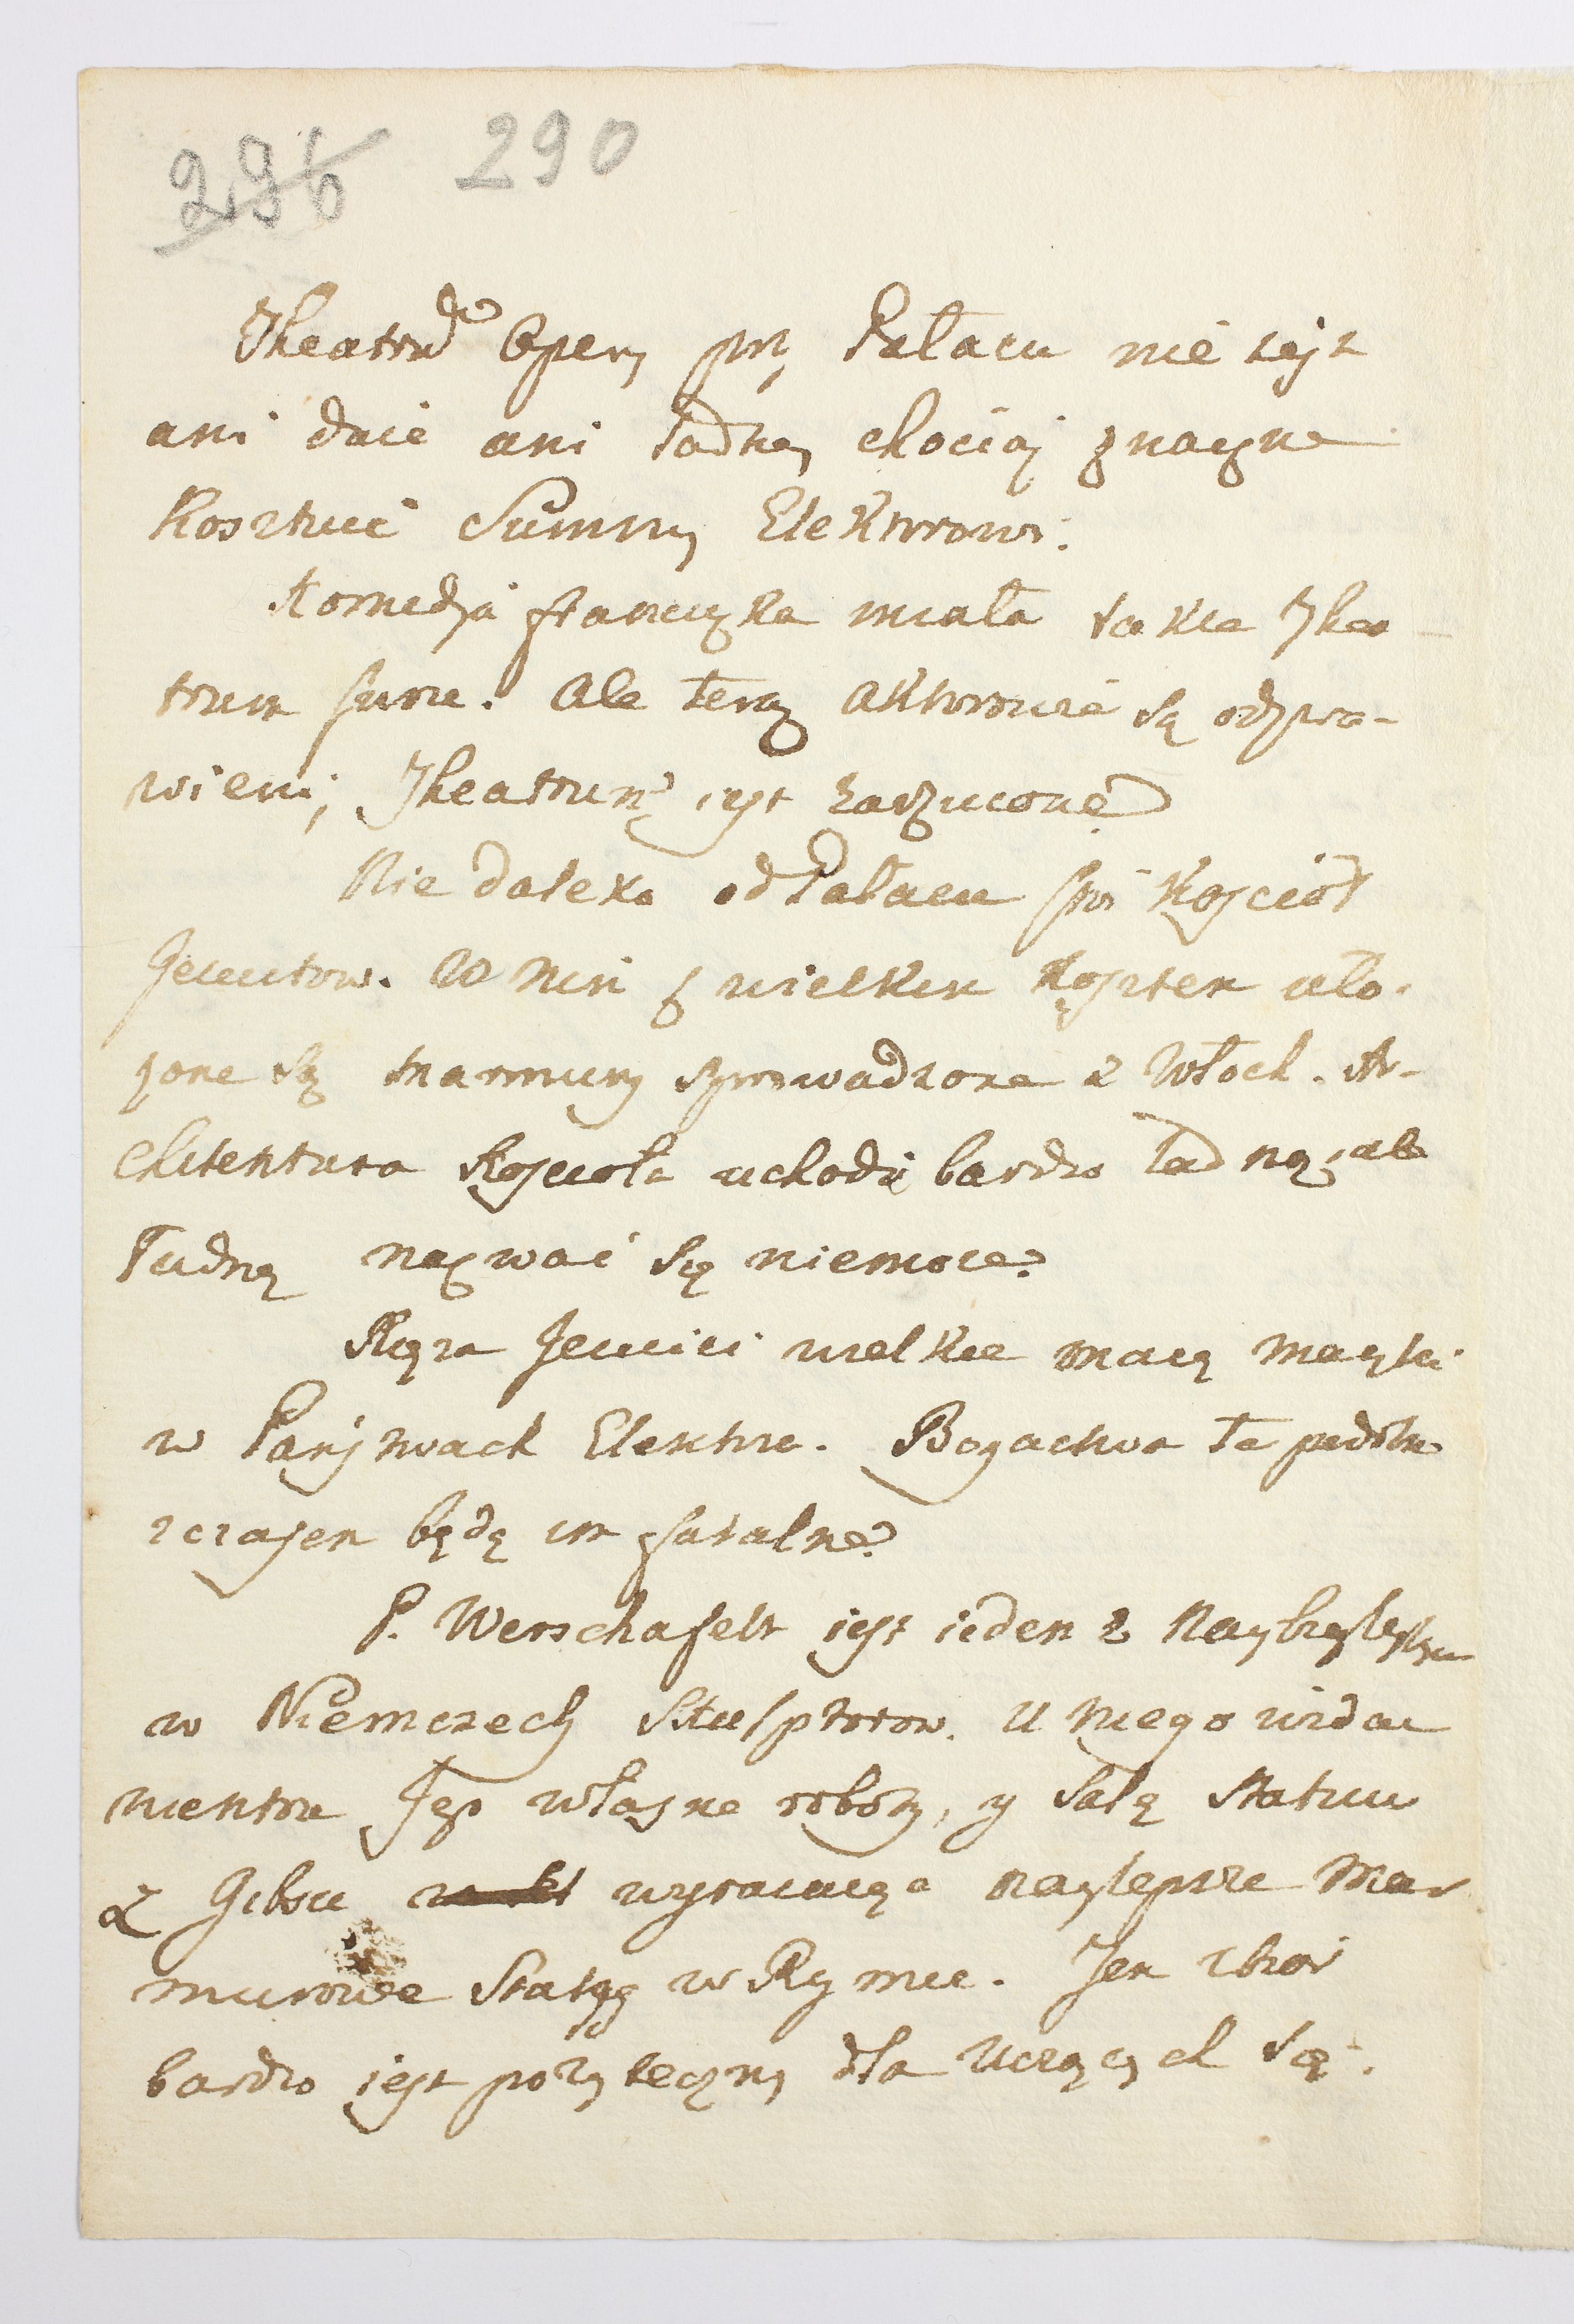 296 290
Theatrũ Opery przy Pałacu nie iest
ani duże ani ładne, chociaż znaczne
Kosztuie Summy Elektorowi.
Komedya francuzka miała także Thea-
trum swoie. Ale teraz Aktorowie są odpra-
wieni, Theatrum iest zarzucone
Nie daleko od Pałacu stoi Kosciół
Jezuitow. W nim z wielkim Kosztem uło-
żone są marmury sprowadzone z Włoch. Ar-
chitektura Kosciołá uchodzi bardzo ładną, ale
cudną nazwać się niemoze.
Xięża Jezuici wielkie maią maiątki
w Państwach Elektora. Bogactwa te podobno
z czasem będą im fatalne.
P. Werschafelt iest ieden z Naybiegleyszych
w Niemczech Skulptorow. U niego widać
niektóre Jego własne roboty, y Salę Statuu
z Gibsu wyrażaiącą naylepsze Mar
murowe Statuy w Rzymie. Ten zbiór
bardzo iest pożyteczny dla Uczących się.